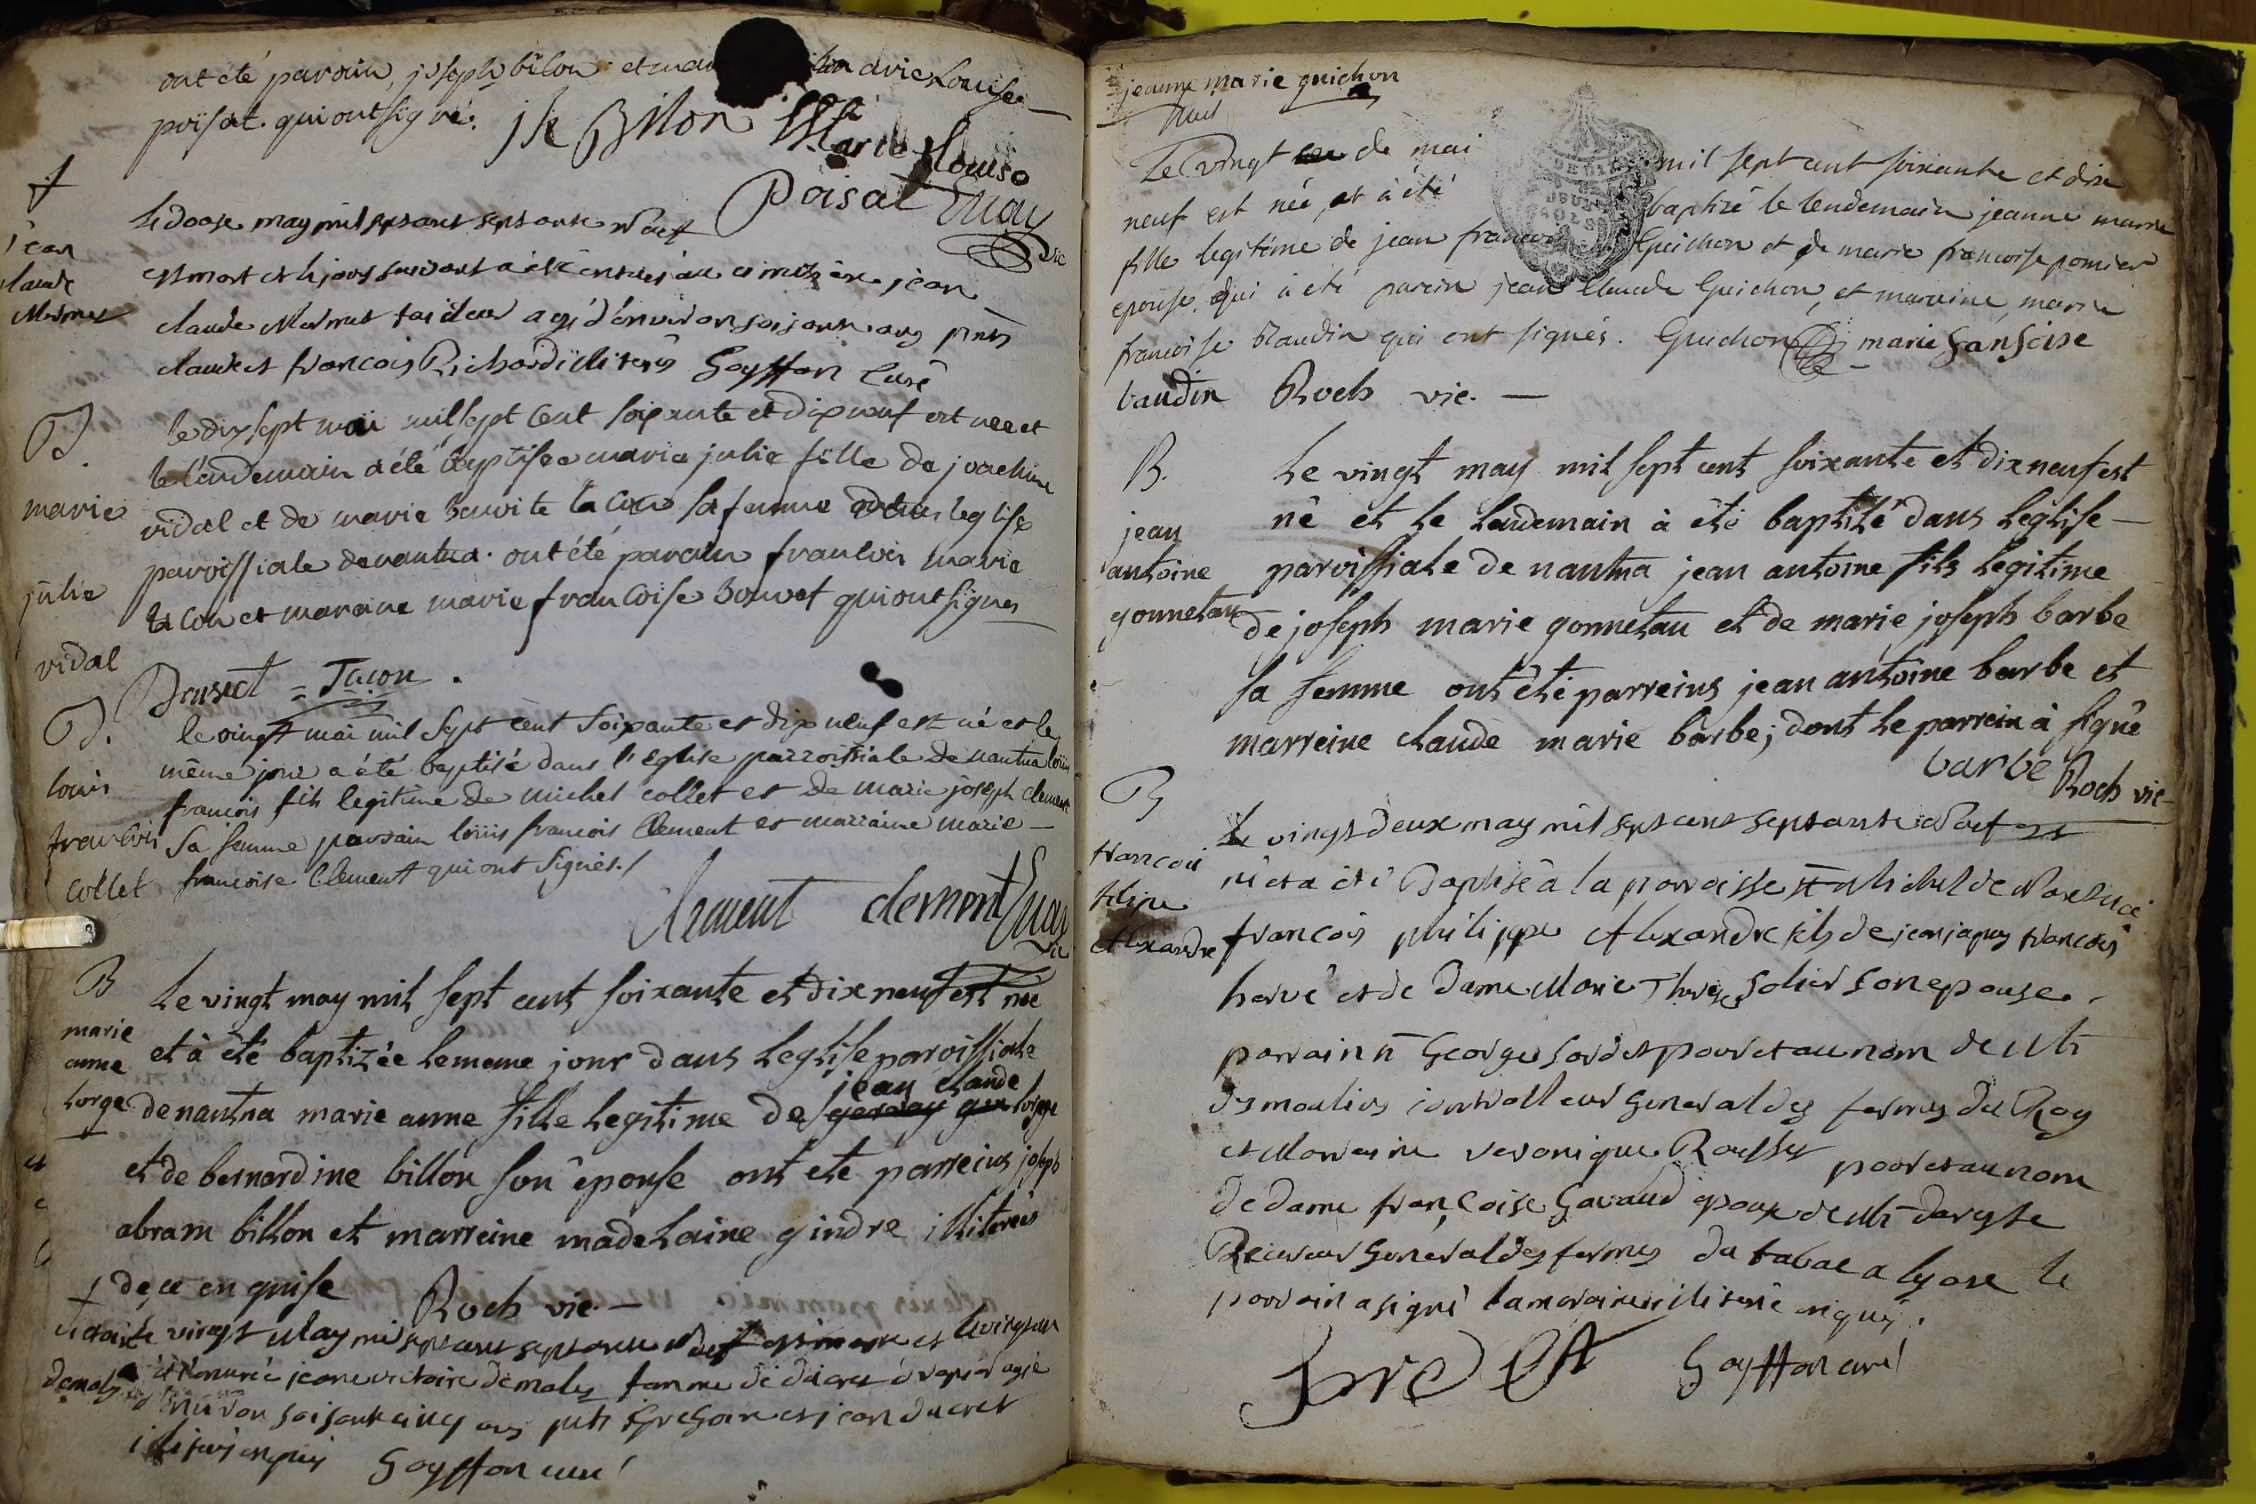 ont été parain, joseph bilon et marie Louise
poisat. qui ont signé. jh Bilon Marie Louise
Poisat
vic
†
jean
claude
Mermet
le dooze may mil sept cent septante Neuf
est mort et le jour suivant a été enterré au cimitière jean
claude Mermet tailleur agé d'environ soisante ans pnts
claude et francois Richard illiterés Goyffon Curé
B.
marie
julie
vidal
le dixsept mai mil sept cent soixante et dixneuf est née et
le lendemain a été baptisée marie julie fille de joachim
vidal et de marie sa femme dans leglise
paroissiale de nantua. ont été parain francois marie
tacon et maraine marie francoise Bouvet qui ont signes
Tacon.
B.
louis
francois
collet
le vingt mai mil sept cent soixante et dix neuf est né et le
même jour a été baptisé dans l'eglise parroissiale de nantua loüis
francois fils legitime de michel collet et de marie joseph clement
sa femme parrain loüis francois Clement et marraine marie
francoise Clement qui ont signés./
Clement clement
vic
B
marie
anne
lorge
le vingt may mil sept cent soixante et dix neuf est née
et à êté baptizée le meme jour dans leglise paroissiale
jean claude
de nantua marie anne fille legitime de lorge
et de bernardine billon son êpouse ont eté parreins joseph
abram billon et marreine madelaine gindre illiterés
de ce enquise Roch vic. —
†
victoire
demoly
le vingt May mil sept cent septante Neuf est morte et le vingt un
été enterrée jeane victoire demoly femme de ducret drapier agée
d'environ soisante cinq ans pnts et jean ducret
illiterés enquis Goyffon curé
jeanne marie guichon
huit
Le vingt de mai mil sept cent soixante et dix
neuf est née, et à été baptisé le lendemain jeanne marie
fille legitime de jean francois Guichon et de marie francoise pomier
epouse. qui à eté parein jean Claude Guichon, et maraine, marie
francoise Baudin qui ont signés. Guichon marie fansoise
baudin Roch vic. —
B.
jean
antoine
gonnetau
Le vingt may mil sept cent soixante et dix neuf est
né et le lendemain à êté baptizé dans leglise —
paroissiale de nantua jean antoine fils legitime
de joseph marie gonnetau et de marie joseph barbe
sa femme ont êté parreins jean antoine barbe et
marreine claude marie barbe; dont le parrein à signé
barbe Roch vic
B
francois
filipe
Alexandre
Le vingt deux may mil sept cent septante Neuf est
né et a été Baptisé a la parroisse St Michel de Nantua
francois philippe Alexandre fils de jean jaques francois
hervé et de Dame Marie Therese solier son epouse.
parrain sr George sordet pour et au nom de Mr
desmoulins controlleur General des fermes du Roy
et Marraine veronique Rousset pour et au nom
de dame françoise Gavaud epouse de Mr
Receveur General des fermes du tabac a lyon le
parrain a signé la marraine illiterée enquise.
Sordet Goyffon curé